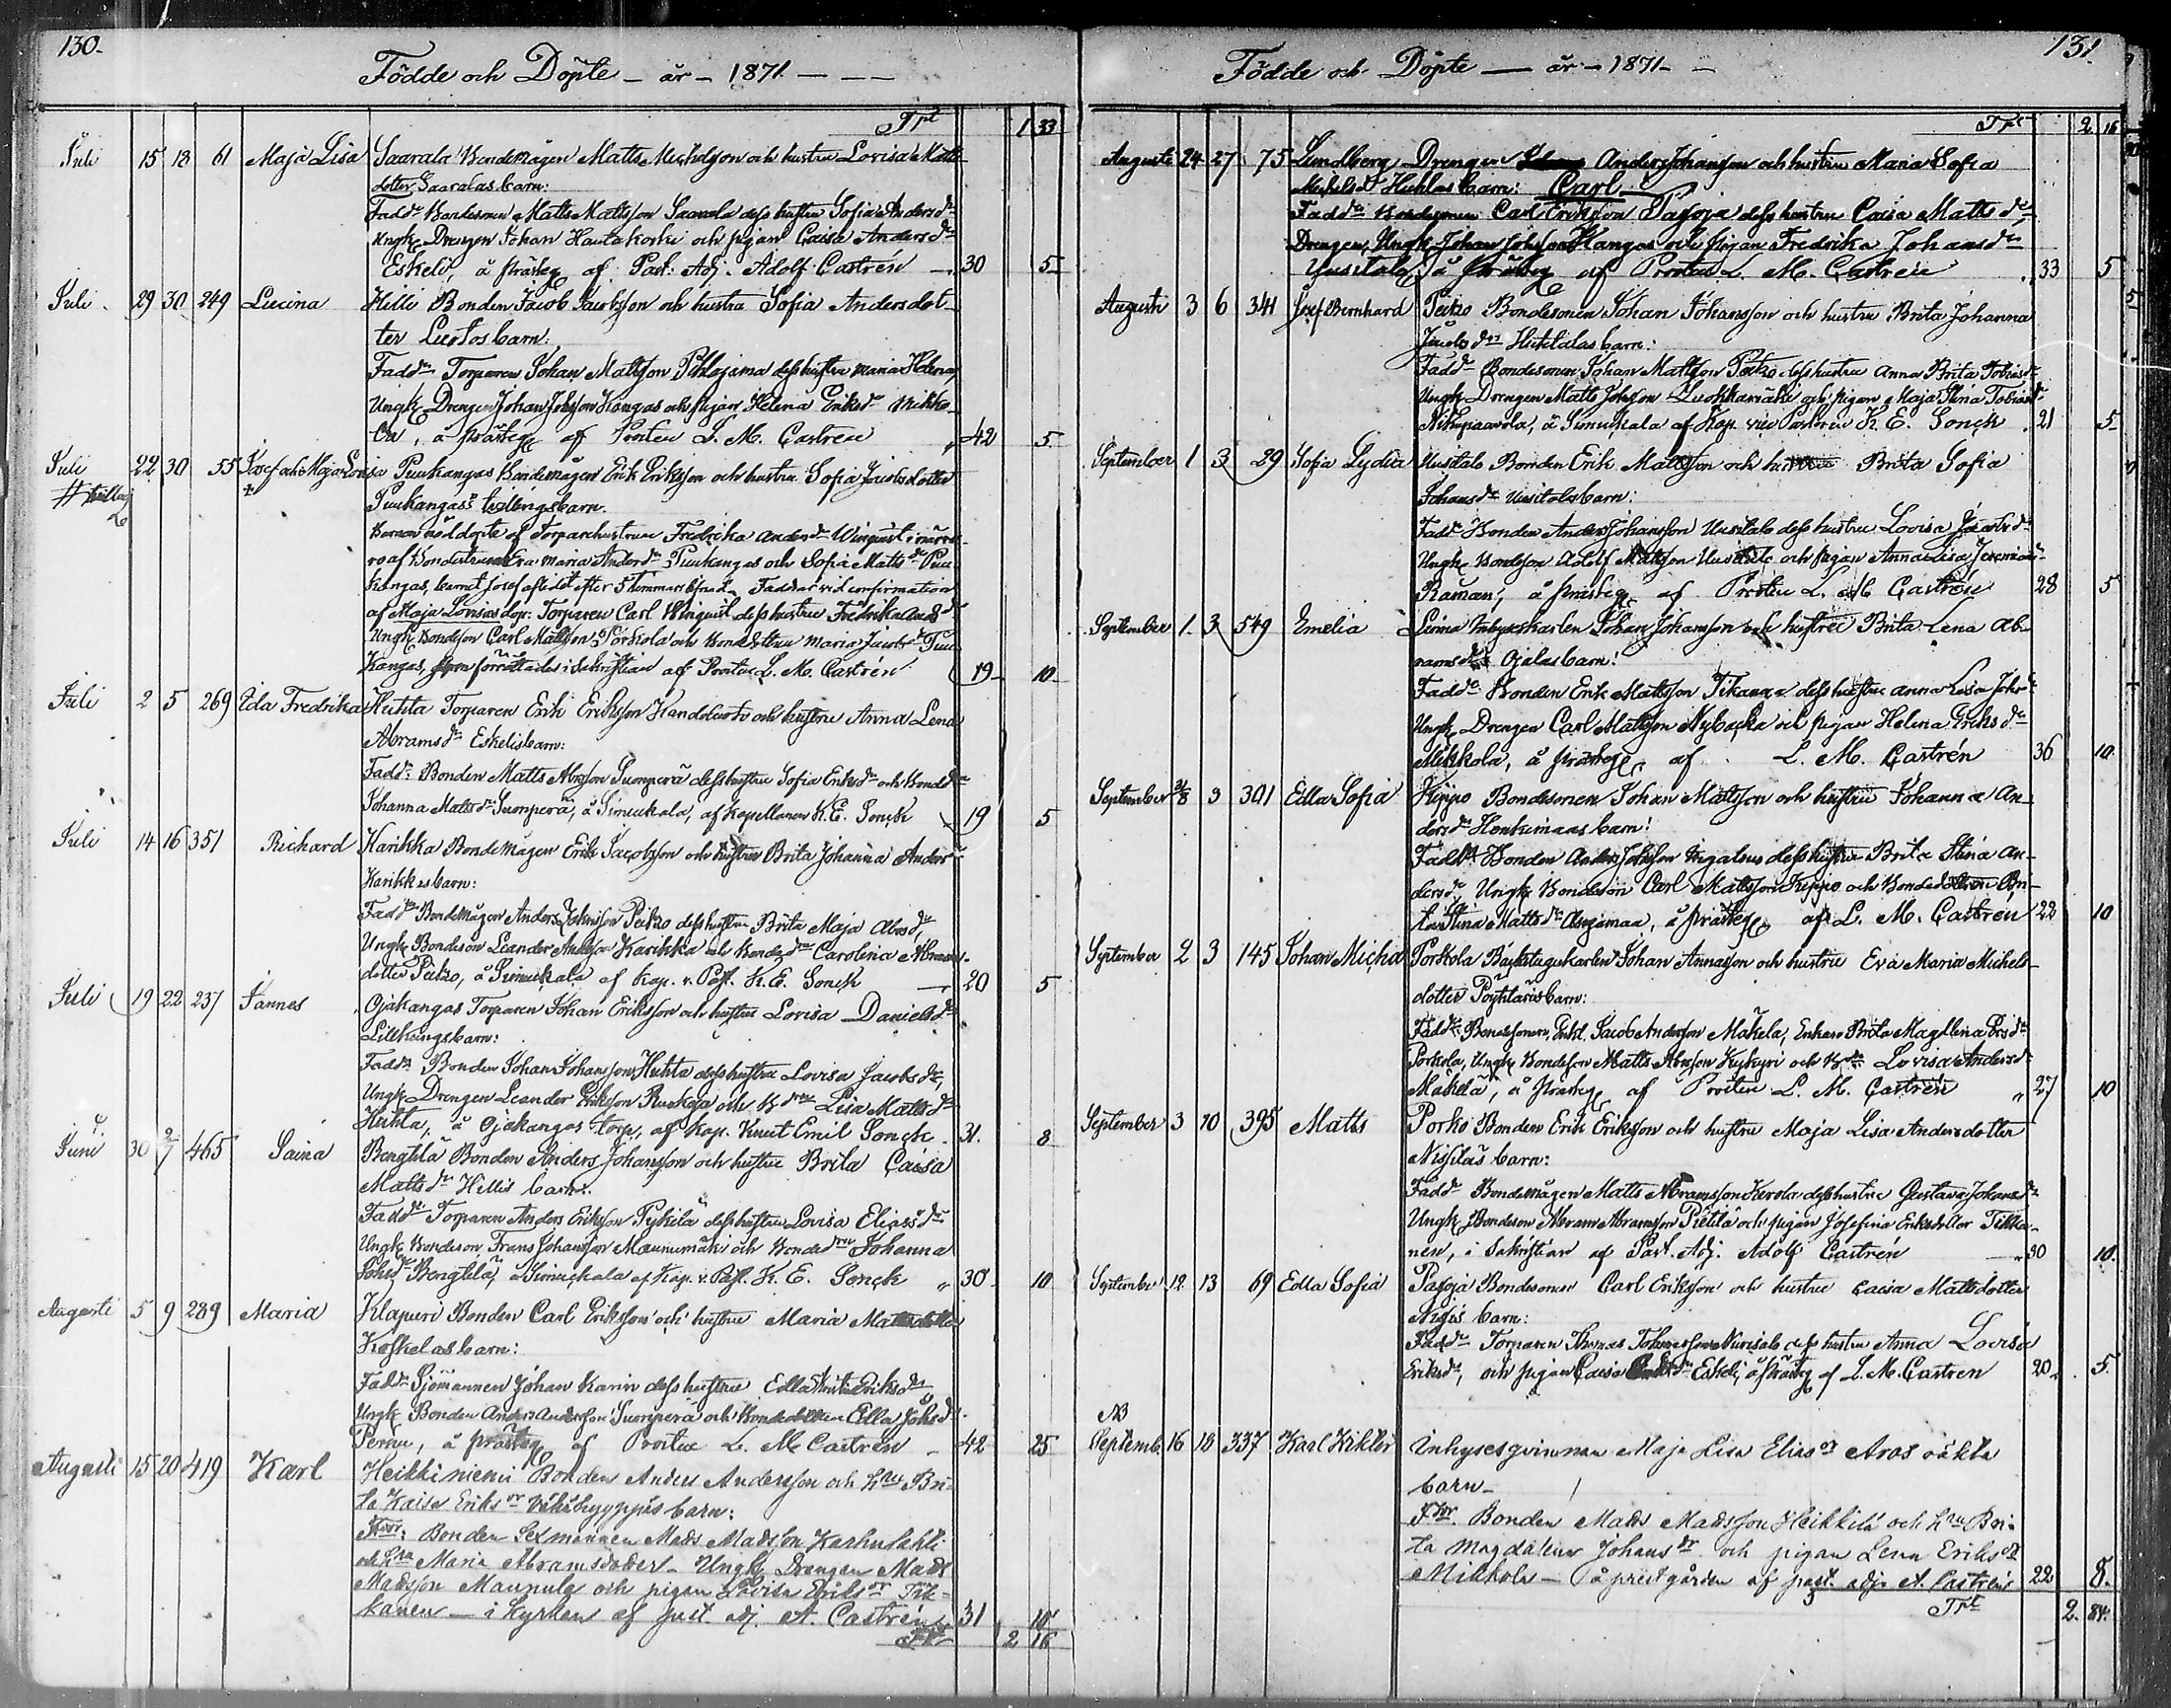 130.
Födde och Döpte – år – 1871. – – –
Trt 1 33
Juli 15 18 61 Maja Lisa Saarala Bondemågen Matts Michelsson och hustru Lovisa Matts
dotter Saaralas barn:
Faddr Bondesonen Matts Mattsson Saarala dess hustru Sofia Andersdr
Ungk. Drengen Johan Hautakoski och pigan Caisa Andersdr
Eskeli, å prästeg af Past. Adj. Adolf Castrén – 30 5
Juli 29 30 249 Lucina Hilli Bonden Jacob Jacobsson och hustru Sofia Andersdot-
ter Luotos barn:
Faddr Torparen Johan Mattsson Pihlajama dess hustru Maria Helena,
Ungk Drengen Johan Johsson Kangas och pigan Helena Eriksdr Mikko-
la, å prästeg af Prosten L. M. Castrén 42 5
Juli 22 30 55 Josef och Maja Lovisa Puukangas Bondemågen Erik Eriksson och hustru Sofia Jacobsdotter
# tvilling Puukangas's tvillingsbarn.
Barnen nöddöpte af Torparehustrun Fredrika Andersdr Winquist i närva-
ro af Bondehustrun Eva Maria Andersdr Puukangas och Sofia Mattsdr Puu
kangas, barnet Josef aflidit efter 5 timmars lefnad. Faddrar vid confirmation
af Maja Lovisas dop: Torparen Carl Winquist dess hustru Fredrika Andsdr
Ungk Bondeson Carl Mattsson Porkola och Bondedottren Maria Jacobsdr Puu
kangas, förrättades i Sakristian af Prosten L. M. Castrén 19 10
Juli 2 5 269 Ida Fredrika Huhta Torparen Erik Eriksson Kandelberg och hustru Anna Lena
Abramsdr Eskelis barn:
Faddr Bonden Matts Abrsson Suonperä dess hustru Sofia Eriksdr och Bondedr
Johanna Mattsdr Suonperä, å Simukala, af Kapellanen K. E. Sonck 19 5
Juli 14 16 351 Richard Karikka Bondemågen Erik Jacobsson och hustru Brita Johanna Andersdr
Karikkas barn:
Faddr Bondemågen Anders Johnsson Peitzo dess hustru Brita Maja Absdr,
Ungk Bondeson Leander Andersson Karikka och Bondedr Carolina Abrams
dotter Peitzo, å Simukala af Kap. v. Past. K. E. Sonck – 20 5
Juli 19 22 237 Jannes Ojakangas Torparen Johan Eriksson och hustru Lovisa Danielsdr
Lillkungs barn:
Faddr Bonden Johan Johansson Huhta dess hustru Lovisa Jacobsdr,
Ungk Drengen Leander Eriksson Ruskoja och Bdren Lisa Mattsdr
Huhta, å Ojakangas torp, af Kap. Knut Emil Sonck. 31. 8
Juni 30 2/7 465 Saina Bengtilä Bonden Anders Johansson och hustru Brita Caisa
Mattsdr Hillis barn:
Faddr Torparen Anders Eriksson Pykilä dess hustru Lovisa Eliassdr
Ungk Bondeson Frans Johansson Maunumäki och Bondedren Johanna
Johsdr Bengtilä, å Simukala af Kap. v. Past. K. E. Sonck „ 30 10
Augusti 5 9 289 Maria Klapuri Bonden Carl Eriksson och hustru Maria Mattsdotter
Koskelas barn:
Faddr Sjömannen Johan Karin dess hustru Edla Stina Eriksdr
Ungk Bonden Anders Andersson Suonperä och Bondedottren Edla Johsdr
Pernu, å prästeg af Prosten L. M. Castrén – 42 25
Augusti 15 20 419 Karl Heikkiniemi Bonden Anders Andersson och hru Bri-
ta Kaisa Eriksdr barn:
Fdr: Bonden Sexmannen Mads Madsson Karhulahti
och hru Maria Abramsdotter – Ungk Drengen Mads
Madsson Maunula och pigan Lovisa Eriksdr Tik-
kanen – i kyrkan af past adj. A. Castrén 31 10
Trt 2 16
131.
Födde och Döpte – år – 1871 – –
Trt 2 16
Augusti 24 27 75 Lundberg Drengen Anders Johansson och hustru Maria Sofia
Michelsdr Huhtas barn: Carl –
Faddr Bondesonen Carl Eriksson Pasoja dess hustru Caisa Mattsdr
Drengen, Ungk Johan Johsson Kangas och pigan Fredrika Johansdr
Yusitalo, å prästeg af Prosten L. M. Castrén 33 5
Augusti 3 6 341 Josef Bernhard Peitzo Bondesonen Johan Johansson och hustru Brita Johanna
Jacobsdrs Huhtalas barn:
Faddr Bondesonen Johan Mattsson Peitzo dess hustru Anna Brita Tobiasdr
Ungk Drengen Matts Johsson Luokkamäki och pigan Maja Stina Tobiasdr
Nikupaavola, å Simukala af Kap. vice Pastoren K. E. Sonck 21 5
September 1 3 29 Sofia Lydia Uusitalo Bonden Erik Mattsson och hustru Brita Sofia
Johansdr Uusitalos barn:
Faddr Bonden Anders Johansson Uusitalo dess hustru Lovisa Jacobsdr
Ungk Bondeson Adolf Mattsson Uusitalo och pigan Anna Lisa Jeremiasdr
Raman, å prästeg af Prosten L. M. Castrén 28 5
September 1 3 549 Emelia Inhyseskarlen Johan Johansson och hustru Brita Lena Ab-
ramsdr Ojalas barn:
Faddr Bonden Erik Mattsson Tikanen dess hustru Anna Lisa Johsdr
Ungk Drengen Carl Mattsson Nybacka och pigan Helena Eriksdr
Mikkola, å prästeg af L. M. Castrén 36 10
September 31/8 3 301 Edla Sofia Keppo Bondesonen Johan Mattsson och hustru Johanna An-
dersdr Honkimaas barn:
Faddr Bonden Anders Johsson Ingalsuo dess hustru Brita Stina An-
dersdr, Ungk Bondeson Carl Mattsson Keppo och Bondedottren Bri-
ta Stina Mattsdr Alasimaa, å prästeg af L. M. Castrén 22 10
September 2 3 145 Johan Michel Porkola Backstugukarlen Johan Annasson och hustru Eva Maria Michels-
dotter Poyhtäris barn:
Faddr Bondesonen, Enkl. Jacob Andersson Mäkelä, Enkan Brita Magdlena Persdr
Porkola, Ungk Bondeson Matts Abrsson Kykyri och Bdr Lovisa Andersdr
Mäkelä, å prästeg af Prosten L. M. Castrén „ 27 10
September 3 10 395 Matts Porko Bonden Erik Eriksson och hustru Maja Lisa Andersdotter
Nissilas barn:
Faddr Bondemågen Matts Abramsson Kerola dess hustru Gustava Johansdr
Ungk Bondeson Abram Abramsson Pietilä och pigan Josefina Eriksdotter Tikka-
nen, i Sakristian af Past. Adj. Adolf Castrén – 30 10.
September 12 13 69 Edla Sofia Pasoja Bondesonen Carl Eriksson och hustru Caisa Mattsdotter
barn:
Faddr Torparen Thomas Johansson Nurisalo dess hustru Anna Lovisa
Eriksdr, och pigan Caisa Andsdr Eskeli, å prästeg af L. M. Castrén 20 5.
NB
Septemb. 16 18 337 Karl Wiktor Inhysesqvinnan Maja Lisa Eliasdr Aros oäkta
barn –
Fdr. Bonden Mads Madsson Heikkilä och hru Bri-
ta Magdalena Johansdr och pigan Lena Eriksdr
Mikkola – å prestgården af past. adj. A. Castrén 22 8.
Trt 2. 84.